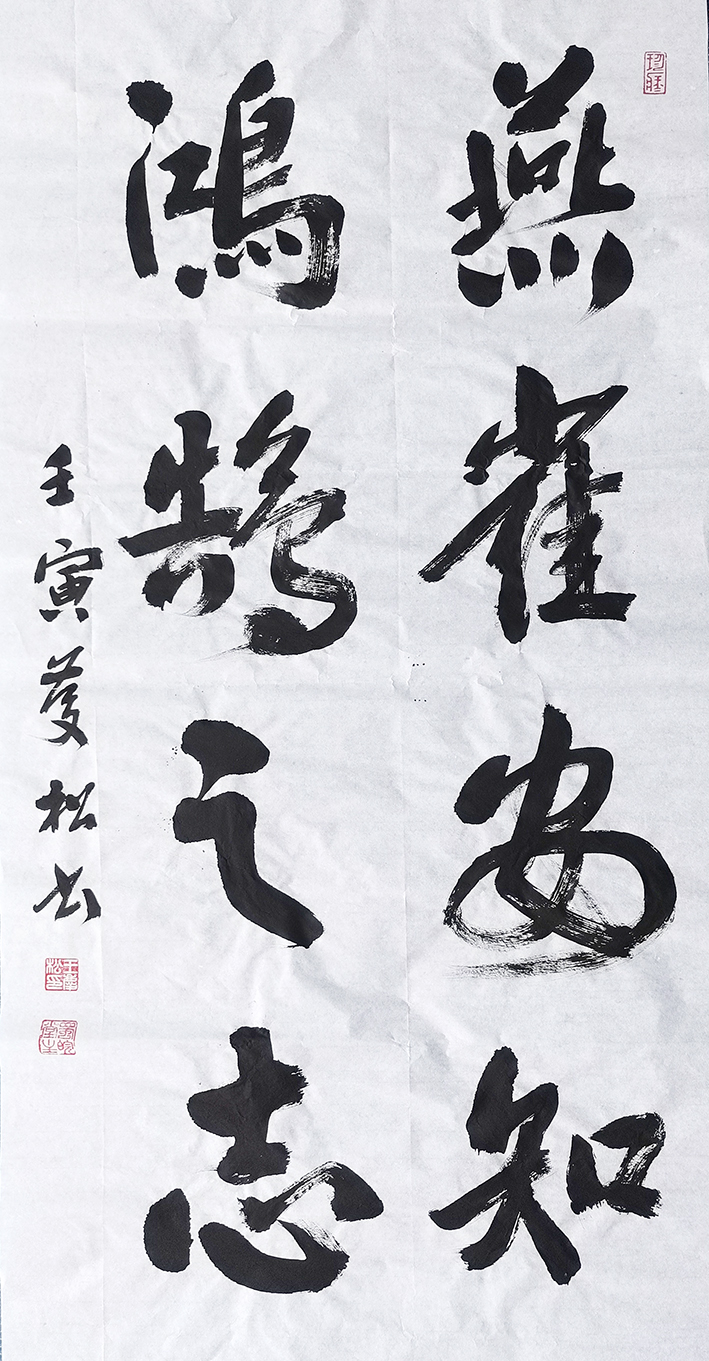 燕雀安知
鴻鵠之志
壬寅 松书